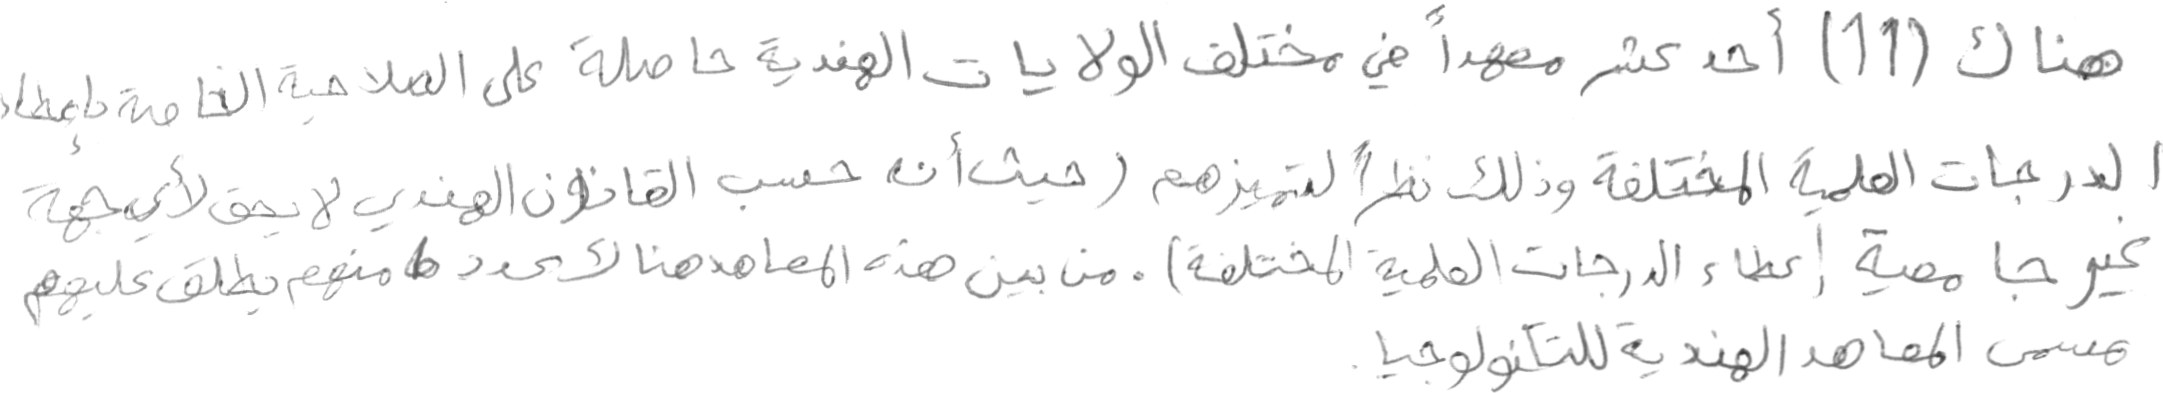 هناك (11) أحد عشر معهداً في مختلف الولايات الهندية حاصلة على الصلاحية الخاصة بإعطاء
الدرجات العلمية المختلفة وذلك نظراً لتميزهم (حيث أنه حسب القانون الهندي لا يحق لأي جهة
غير جامعية إعطاء الدرجات العلمية المختلفة). من بين هذه المعاهد هناك عدد 6 منهم يطلق عليهم
مسمى المعاهد الهندية للتكنولوجيا.